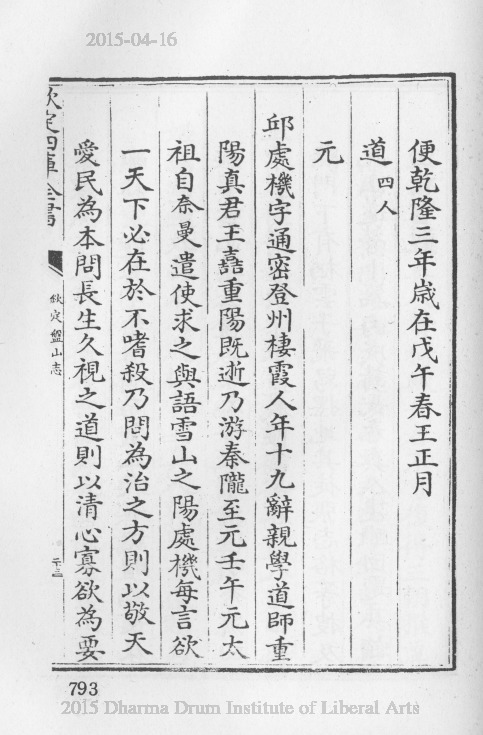 2015-04-16
便乾隆三年歲在戊午春王正月
道四人
元
邱處機字通密登州棲霞人年十九辭親學道師重
陽真君王嚞重陽既逝乃游秦隴至元壬午元太
祖自奈曼遣使求之與語雪山之陽處機每言欲
一天下必在於不嗜殺乃問為治之方則以敬天
愛民為本問長生久視之道則以清心寡欲為要
欽定四庫全書
欽定盤山志
二十三
793
2015 Dharma Drum Institute of Liberal Arts